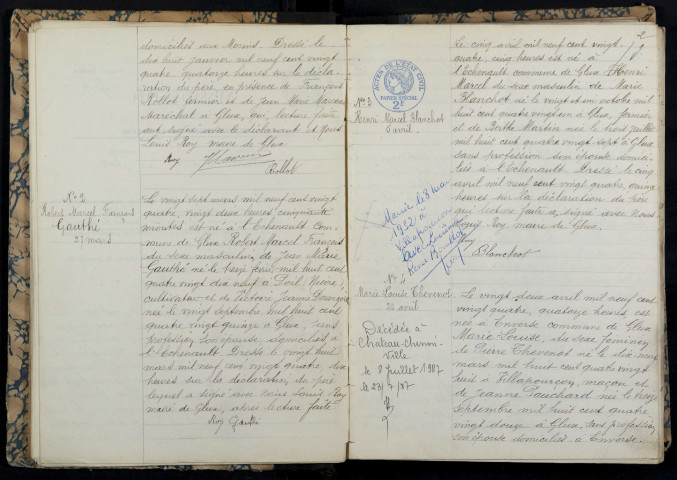 domiciliés aux Morins. Dressé le
dix huit janvier mil neuf cent vingt
quatre quatorze heures sur la décla
ration du père, en présence de François
Rollot fermier et de Jean Marie
Maréchal à Glux, qui, lecture faite
ont signé avec le déclarant et Nous
Louis Roy maire de Glux.
Roy
Rollot
No 2
Robert Marcel François
Gauthé
27 mars
Le vingt sept mars mil neuf cent vingt
quatre, vingt deux heures cinquante
minutes est né à l'Echenault Com
mune de Glux Robert Marcel François
du sexe masculin, de Jean Marie
Gauthé né le treize mil huit cent
quatre vingt dix neuf à Poil, Nièvre,
cultivateur et de Victoire Jeanne
née le vingt septembre mil huit cent
quatre vingt quinze à Glux, sans
profession, son épouse domiciliés à
l'Echenault. Dressé le vingt huit
mars mil neuf cent vingt quatre dix
heures sur la déclaration du père
lequel a signé avec Nous Louis Roy
maire de Glux, après lecture faite
Roy Gauthé
ACTES DE L'ETAT CIVIL
PAPIER SPECIAL
2F
No 3
Henri Marcel Blanchot
5 avril
Le cinq avril mil neuf cent vingt
quatre, cinq heures est né à
l'Echenault commune de Glux Henri
Marcel du sexe masculin de Marie
Blanchot né le vingt et un octobre mil
huit cent quatre vingt un à Glux, fermier
et de Berthe Martin née le trois juillet
mil huit cent quatre vingt sept à Glux
sans profession son épouse domici
liés à l'Echenault Dressé le cinq
avril mil neuf cent vingt quatre, quinze
heures sur la déclaration du père
qui lecture faite a signé avec Nous
Louis Roy maire de Glux.
Roy
Blanchot
Marié le 8 mai
1952 à
Villapourçon
avec Louise
No 4
Marie Louise Thevenot
22 avril
Décédée à
Chateau-Chinon-
Ville
le 8 juillet 1987
le 23/7/87
Le vingt deux avril mil neuf cent
vingt quatre, quatorze heures, est
née à Enverse commune de Glux
Marie Louise, du sexe féminin,
de Pierre Thevenot né le dix
mars mil huit cent quatre vingt
huit à Villapourçon, maçon et
de Jeanne Gauchard née le treize
septembre mil huit cent quatre
vingt douze à Glux, sans profession
son épouse domiciliés à Enverse.